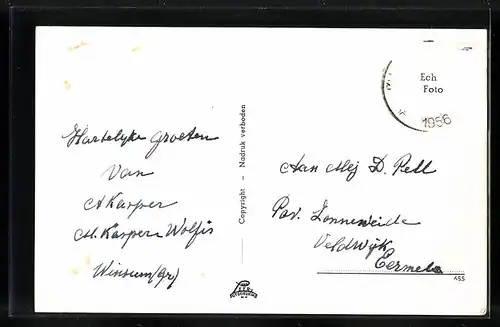 Hartelyke groeten
van
A Karper
M. Karper Wolfis
Winsum (Gr)
Copyright - Nadruk verboden
Ech
Foto
1956
Aan Mej D. Pell
Pav. Zonneweide
Veldwijk
Ermelo
455